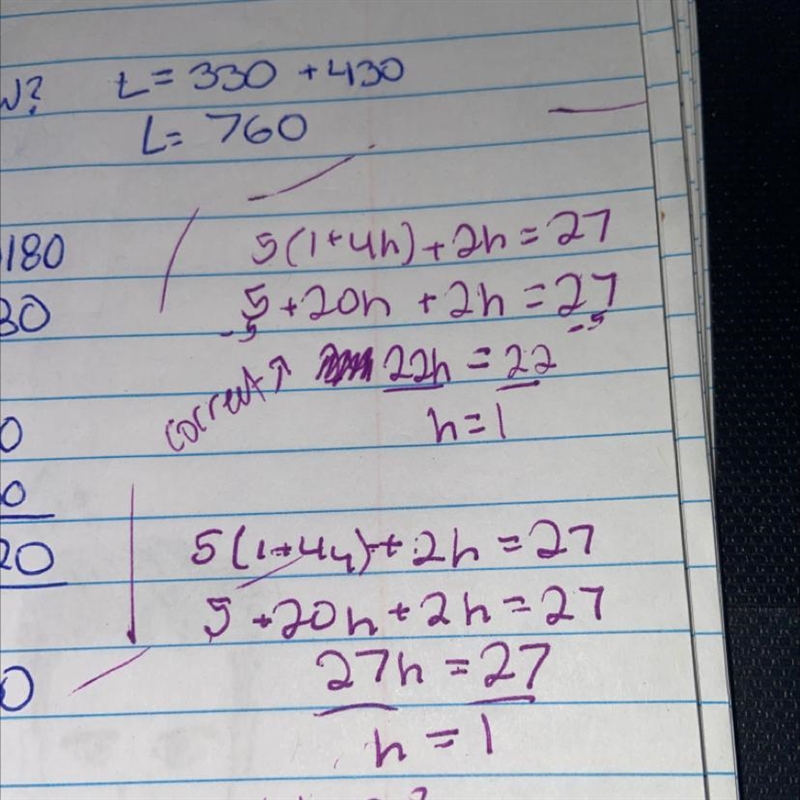 W? L = 330 + 430
L = 760
180
30
0
0
20
0
5(1+4h)+2h = 27
5+20h+2h = 27
-5 -5
correct ↑ 22h = 22
h = 1
5(1+4h)+2h = 27
5+20h+2h = 27
27h = 27
h = 1